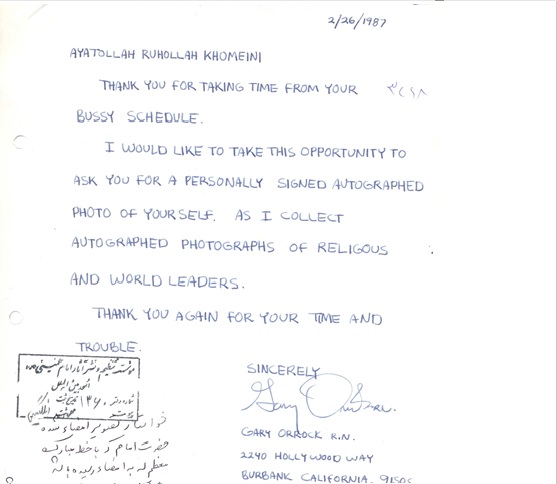 2/26/1987
AYATOLLAH RUHOLLAH KHOMEINI
THANK YOU FOR TAKING TIME FROM YOUR
BUSSY SCHEDULE.
I WOULD LIKE TO TAKE THIS OPPORTUNITY TO
ASK YOU FOR A PERSONALLY SIGNED AUTOGRAPHED
PHOTO OF YOURSELF. AS I COLLECT
AUTOGRAPHED PHOTOGRAPHS OF RELIGOUS
AND WORLD LEADERS.
THANK YOU AGAIN FOR YOUR TIME AND
TROUBLE.
SINCERELY
GARY ORROCK R.N.
2240 HOLLYWOOD WAY
BURBANK CALIFORNIA. 91505
مؤسسه تنظیم و نشر آثار امام خمینی
تصویر امضاء شده
حضرت امام که با خط مبارک
معظم له به امضاء رسیده